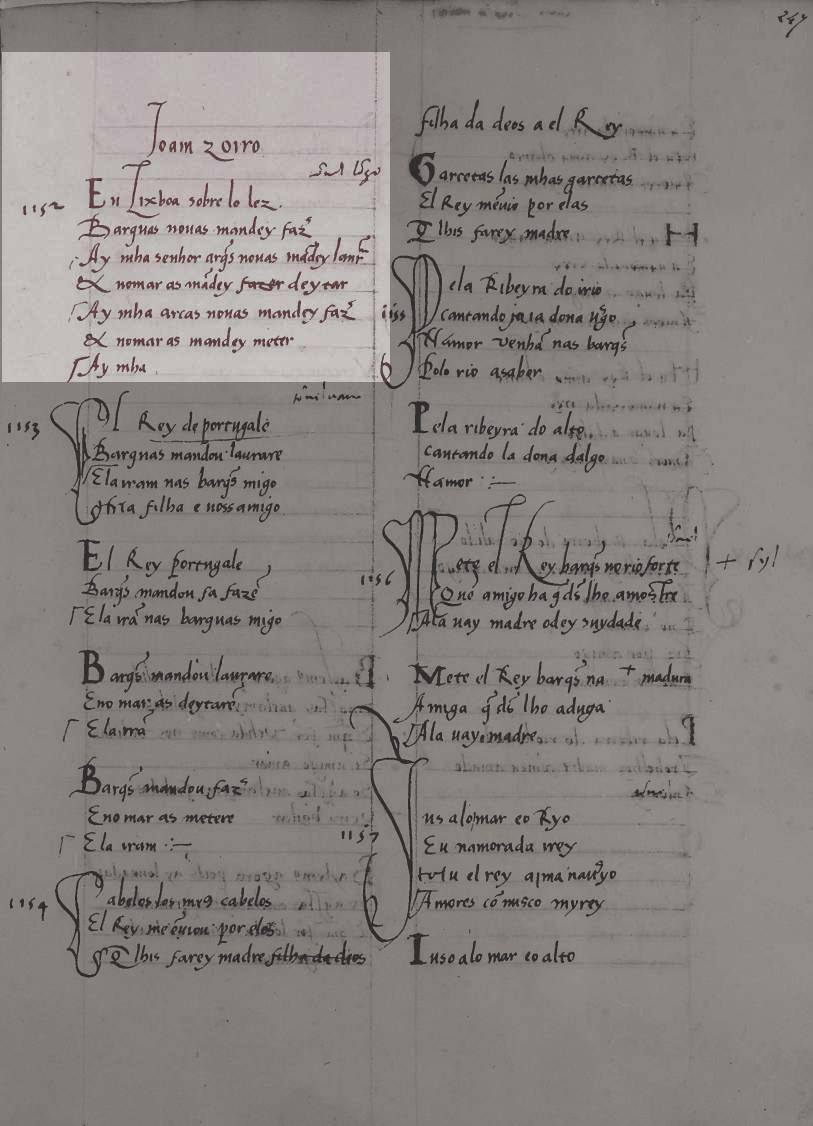 247
Joam zoiro
1152
En Lixboa sobre lo lez.
Barquas nouas mandey faz
Ay mha senhor arqs nouas mādey laur
& nomar as mādey fazer deytar
Ay mha arcas nouas mandey faz
& nomar as mandey meter
Ay mha
1153
El Rey de portugale
Barquas mandou laurare
Ela iram nas barqs migo
filha e noss amigo
El Rey portugale
Barqs mandou fazer
Ela irā nas barquas migo
Barqs mandou laurare
Eno mar as deytare
Ela irā
Barqs mandou faz
Eno mar as metere
Ela iram
1154
Cabelos los meg cabelos
El Rey me enuiou por elos
Qlhis farey madre filha da deos
filha da deos a el Rey
Garcetas las mhas garcetas
El Rey mēuio por elas
Qlhis farey madre
1155
Pela Ribeyra do irio
cantando ia la dona ugo
Namor venhā nas barqs
Polo rio a sabor
Pela ribeyra do alto
cantando la dona dalgo
Namor
1156
Mete el Rey barqs no rio forte
Que amigo ha q ds lho amostre
Ala uay madre odey suydade
Mete el Rey barqs na + madura
Amiga q ds lho aduga
Ala uay madre
1157
Jus alo mar eo Ryo
Eu namorada irey
el rey arma nauyo
Amores cō uusco myrey
Iuso alo mar eo alto